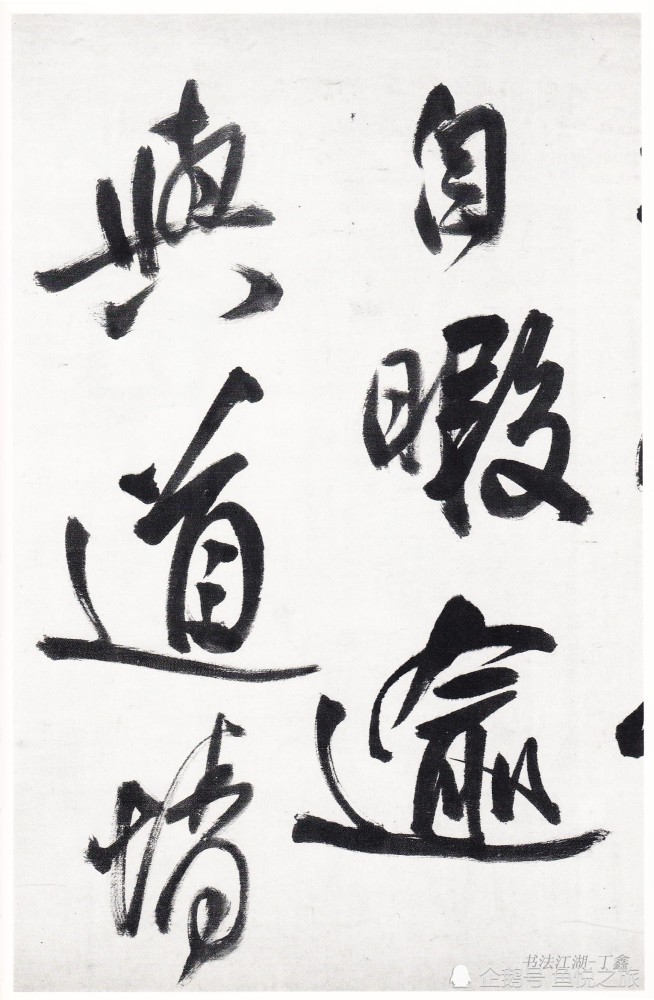 自暇逾
與道情
书法江湖-丁鑫
企鹅号 鱼悦之旅